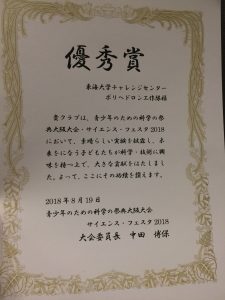 優秀賞
東海大学チャレンジセンター
ポリヘドロンズ作隊様
貴クラブは、青少年のための科学の祭
典大阪大会・サイエンス・フェスタ2018
において、素晴らしい実験を披露し、未
来をになう子どもたちが科学・技術に興
味を持つ上で、大きな貢献をはたしまし
た。よって、ここにその功績を讃えます。
2018年8月19日
青少年のための科学の祭典大阪大会
サイエンス・フェスタ2018
大会委員長 中田 博保